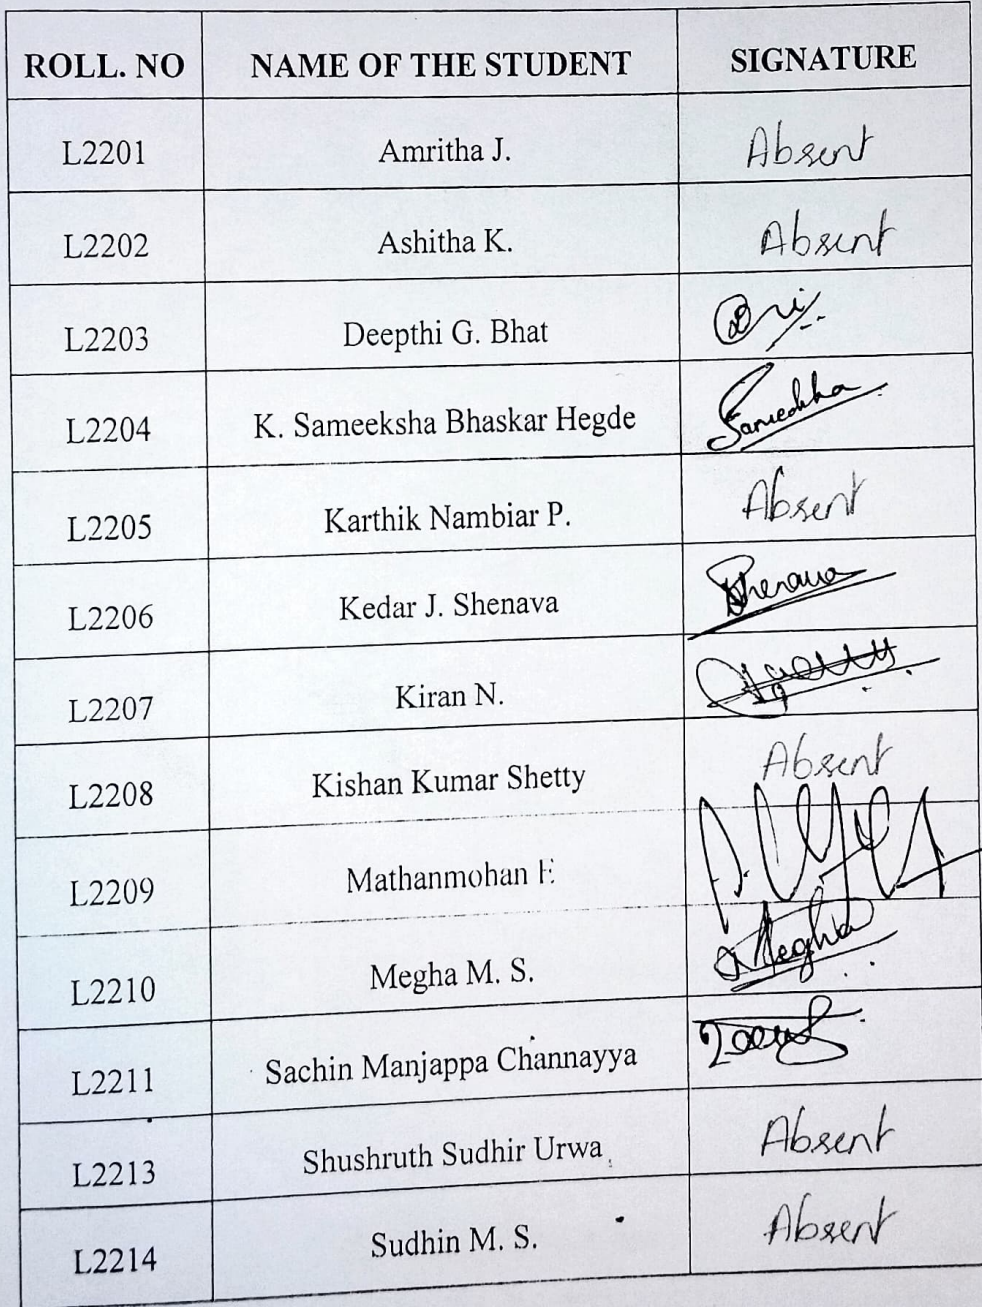 ROLL. NO NAME OF THE STUDENT SIGNATURE
L2201 Amritha J. Absent
L2202 Ashitha K. Absent
L2203 Deepthi G. Bhat
L2204 K. Sameeksha Bhaskar Hegde Sameeksha
L2205 Karthik Nambiar P. Absent
L2206 Kedar J. Shenava Shenava
L2207 Kiran N.
L2208 Kishan Kumar Shetty Absent
L2209 Mathanmohan
L2210 Megha M. S. Megha
L2211 Sachin Manjappa Channayya
L2213 Shushruth Sudhir Urwa Absent
L2214 Sudhin M. S. Absent